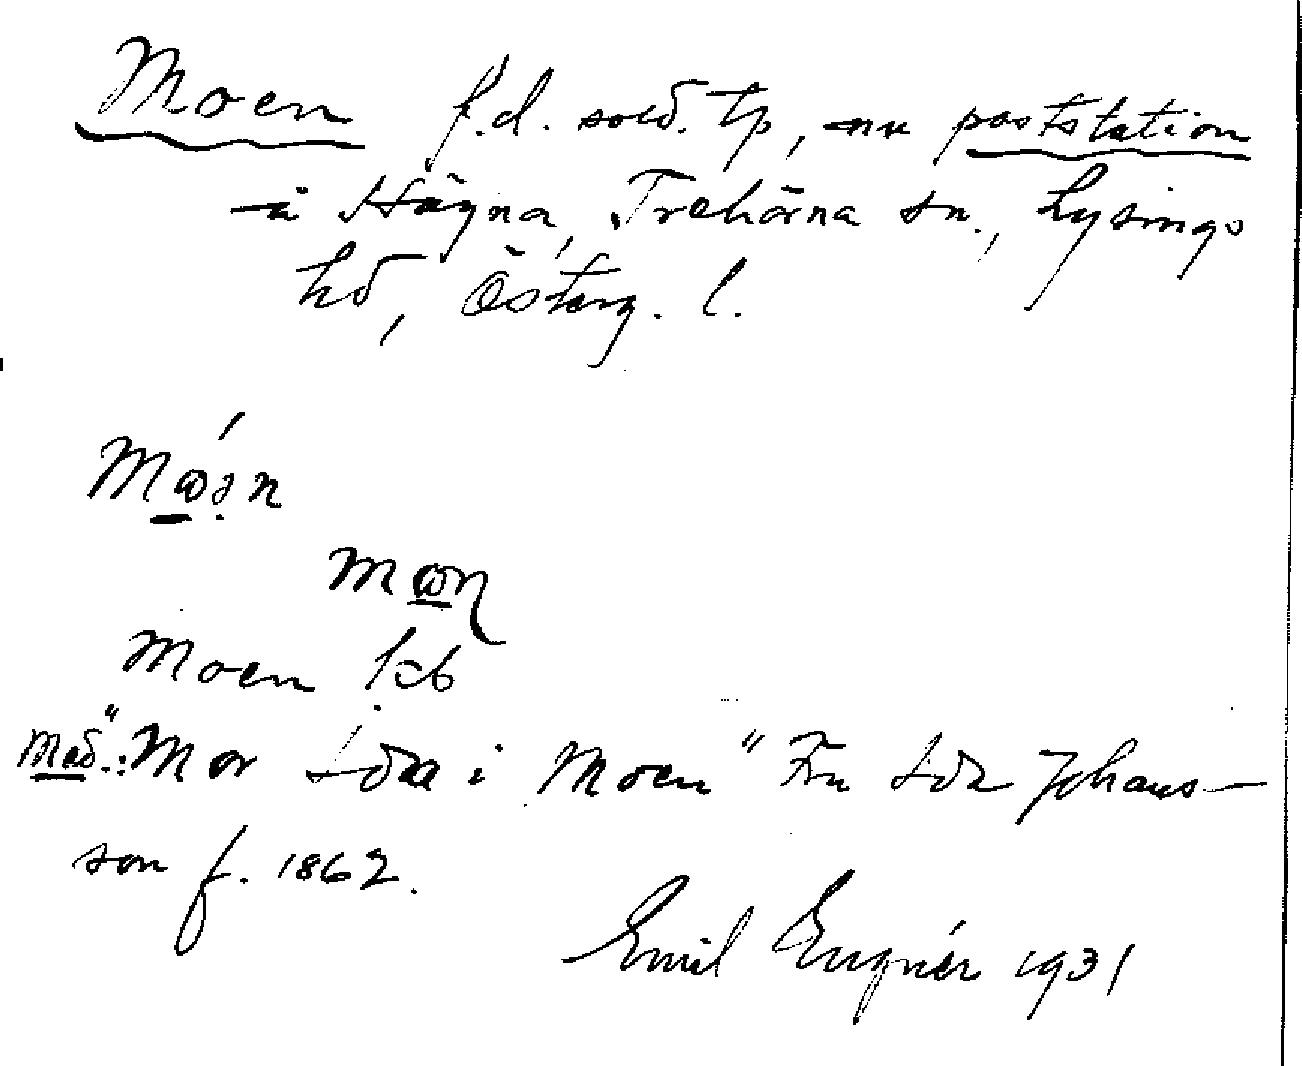 Moen f.d. sold. tp, nu poststation
å Hägna, Trehörna sn., Lysings
hd, Österg. l.
Moen
"Mor Ida i Moen" Fru Ida Johans-
son f. 1862.
Emil Engnér 1931